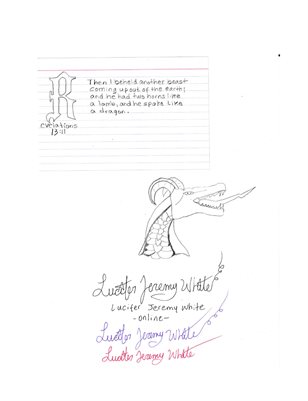 Then I beheld another beast
coming up out of the earth;
and he had two horns like
a lamb, and he spake like
a dragon.
Revelations
13:11
Lucifer Jeremy White
Lucifer Jeremy White
-online-
Lucifer Jeremy White
Lucifer Jeremy White